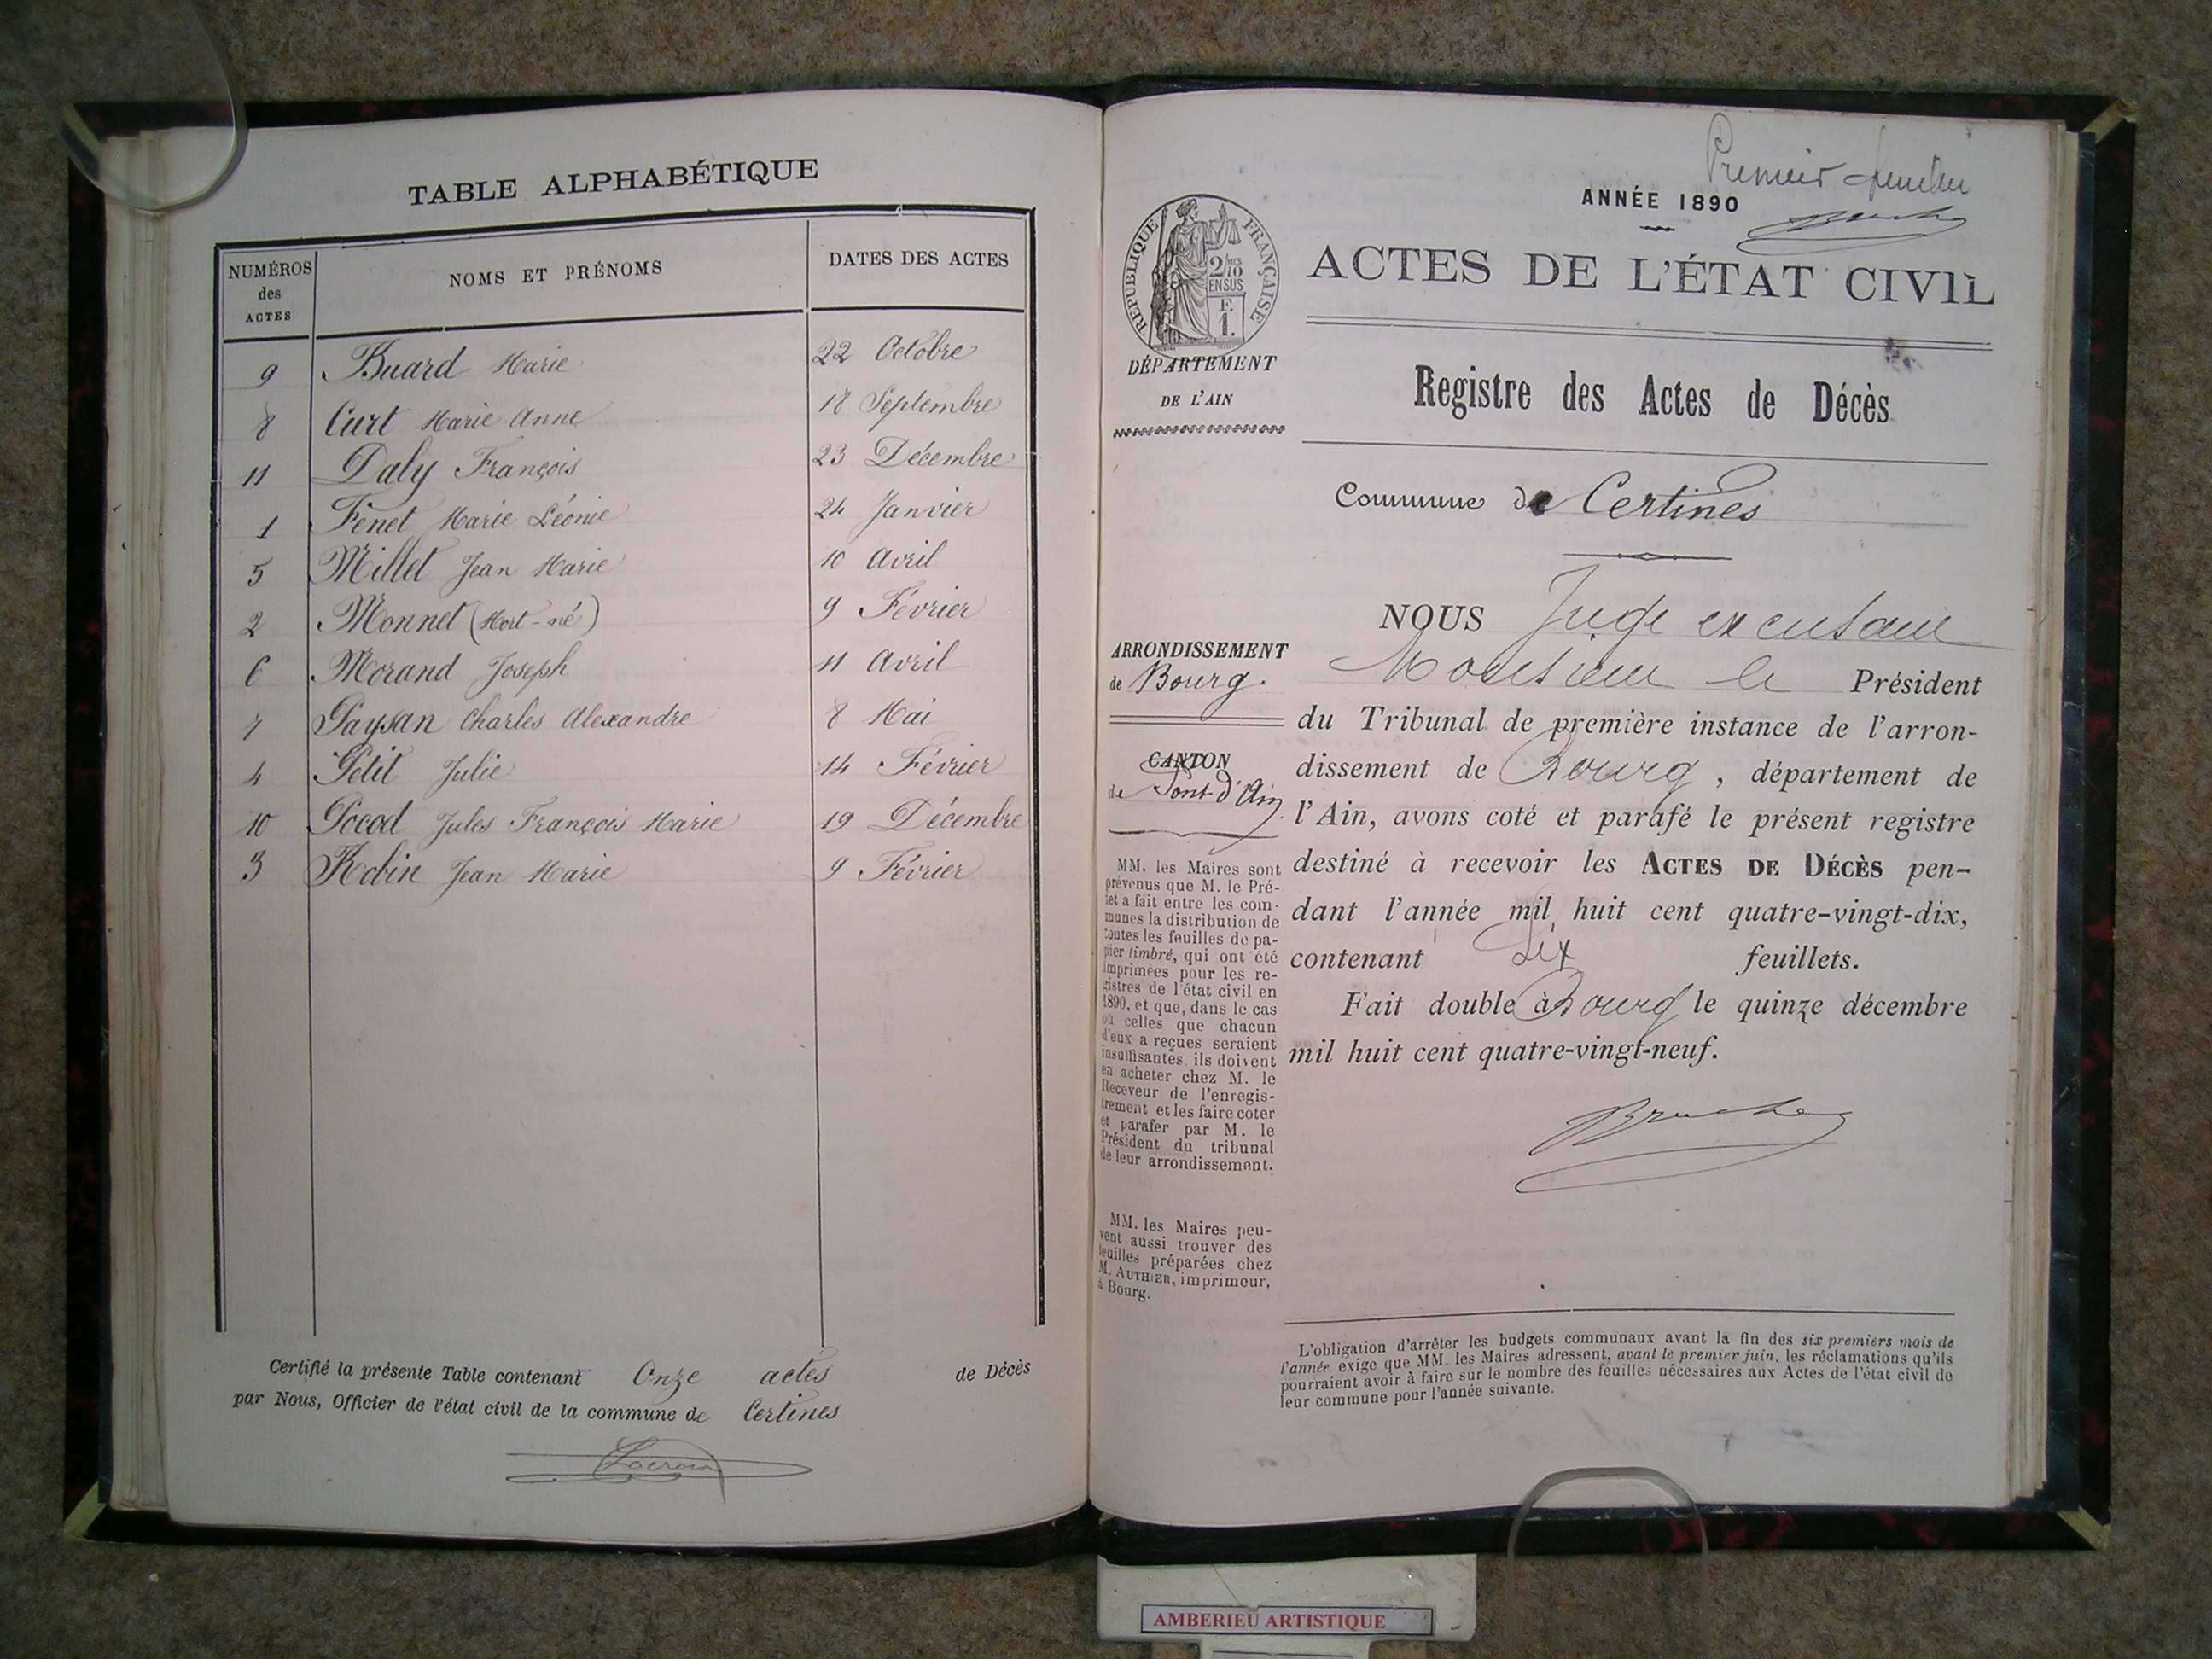 TABLE ALPHABÉTIQUE
NUMÉROS des ACTES NOMS ET PRÉNOMS DATES DES ACTES
9 Buard Marie 22 Octobre
8 Curt Marie Anne 18 Septembre
11 Daly François 23 Décembre
1 Fenet Marie Léonie 24 Janvier
5 Millet Jean Marie 10 Avril
2 Monnet (Mort-né) 9 Février
6 Morand Joseph 11 Avril
7 Paysan Charles Alexandre 8 Mai
4 Petit Julie 14 Février
10 Pocod Jules François Marie 19 Décembre
3 Robin Jean Marie 9 Février
Certifié la présente Table contenant Onze actes de Décès
par Nous, Officier de l'état civil de la commune de Certines
Lacroix
Premier feuillet
ANNÉE 1890
RÉPUBLIQUE FRANÇAISE
2/10
EN SUS
F.
1.
ACTES DE L'ÉTAT CIVIL
DÉPARTEMENT
DE L'AIN
Registre des Actes de Décès
Commune de Certines
ARRONDISSEMENT
de Bourg.
CANTON
de Pont d'Ain
MM. les Maires sont
prévenus que M. le Pré-
fet a fait entre les com-
munes la distribution de
toutes les feuilles de pa-
pier timbré, qui ont été
imprimées pour les re-
gistres de l'état civil en
1890, et que, dans le cas
où celles que chacun
d'eux a reçues seraient
insuffisantes, ils doivent
en acheter chez M. le
Receveur de l'enregis-
trement et les faire coter
et parafer par M. le
Président du tribunal
de leur arrondissement.
MM. les Maires peu-
vent aussi trouver des
feuilles préparées chez
M. AUTHIER, imprimeur,
à Bourg.
NOUS Juge
Monsieur le Président
du Tribunal de première instance de l'arron-
dissement de Bourg, département de
l'Ain, avons coté et parafé le présent registre
destiné à recevoir les ACTES DE DÉCÈS pen-
dant l'année mil huit cent quatre-vingt-dix,
contenant Six feuillets.
Fait double à Bourg le quinze décembre
mil huit cent quatre-vingt-neuf.
L'obligation d'arrêter les budgets communaux avant la fin des six premiers mois de
l'année exige que MM. les Maires adressent, avant le premier juin, les réclamations qu'ils
pourraient avoir à faire sur le nombre des feuilles nécessaires aux Actes de l'état civil de
leur commune pour l'année suivante.
AMBERIEU ARTISTIQUE